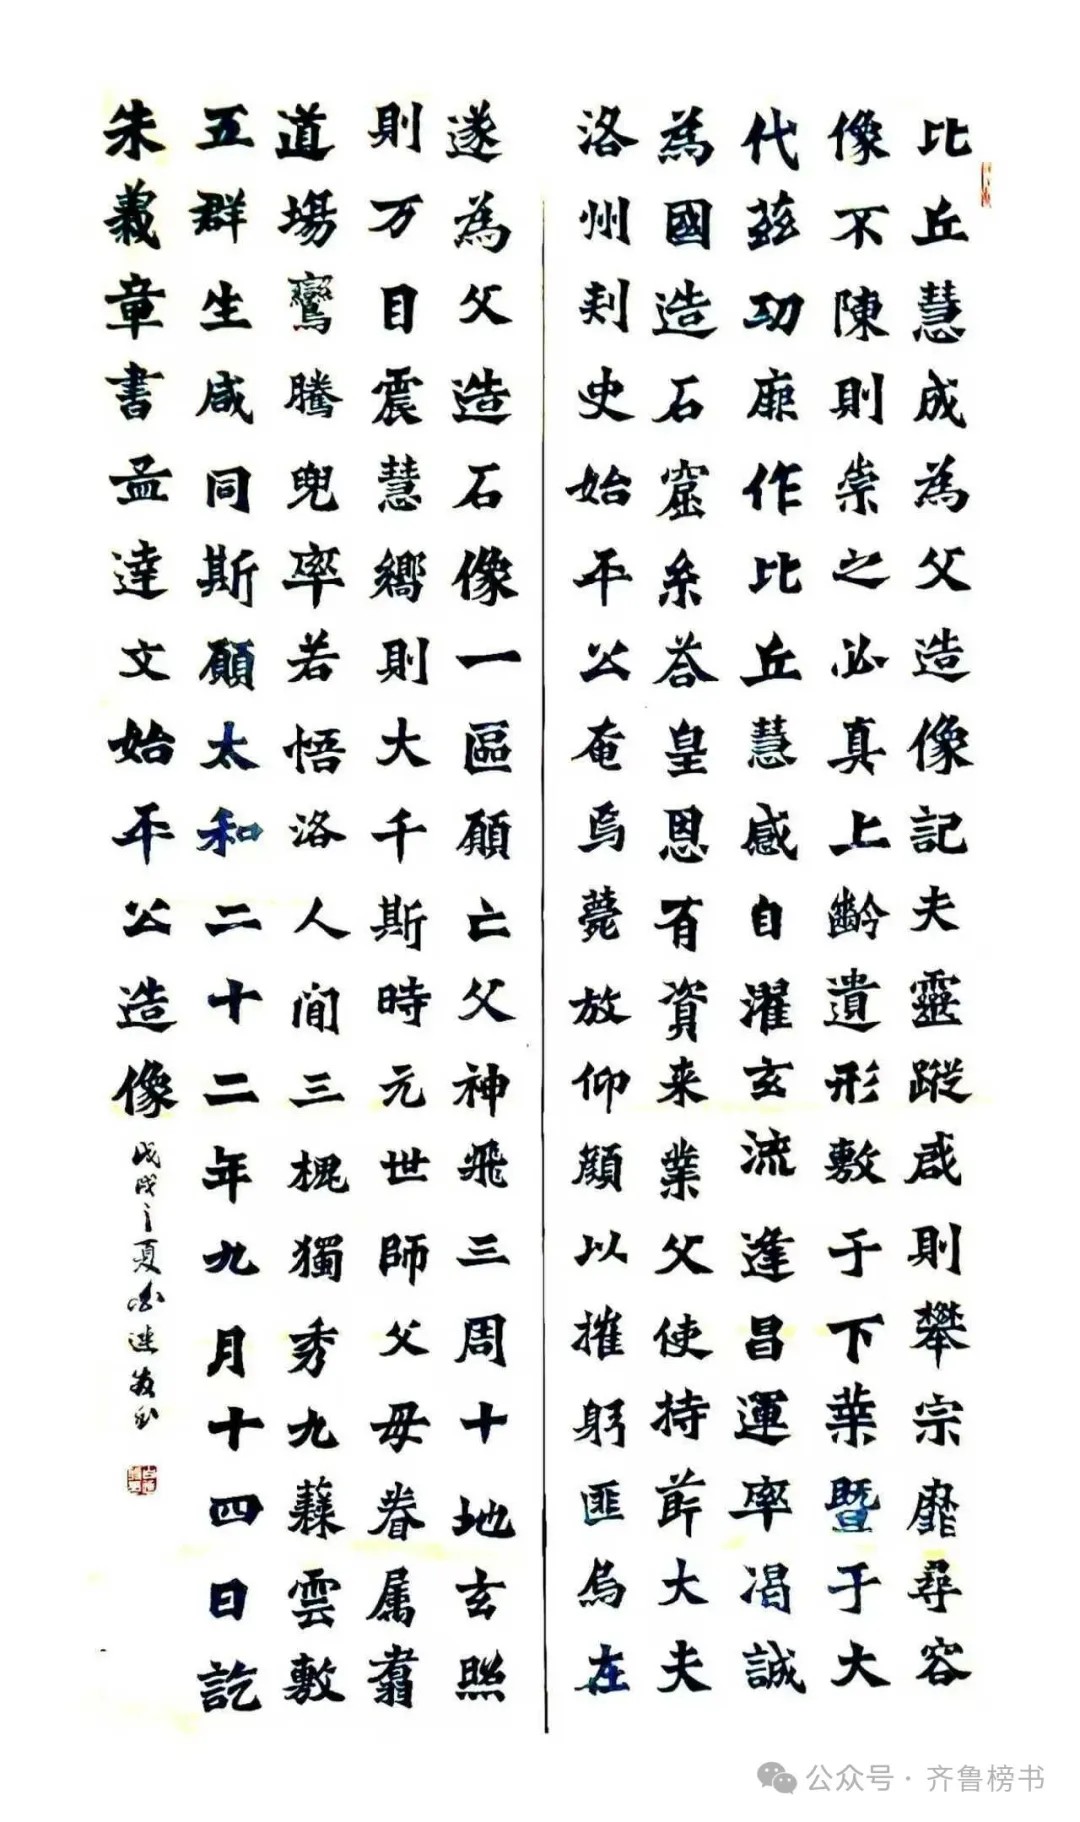 比丘慧成為父造像記夫靈蹤咸則攀宗靡尋容
像不陳則崇之必真上齡遺形敷于下葉暨于大
代茲功厞作比丘慧感自濯玄流逢昌運率渴誠
為國造石窟系荅皇恩有資来業父使持莭大夫
洛州刾史始平公奄焉薨放仰顏以摧躬匪烏在
遂為父造石像一區願亡父神飛三周十地玄照
則万目震慧嚮則大千斯時元世師父母眷属翥
道場鸞騰兜率若悟洛人間三槐獨秀九蕀雲敷
五群生咸同斯願太和二十二年九月十四日訖
朱義章書孟達文始平公造像
戊戌之夏
公众号·齐鲁榜书